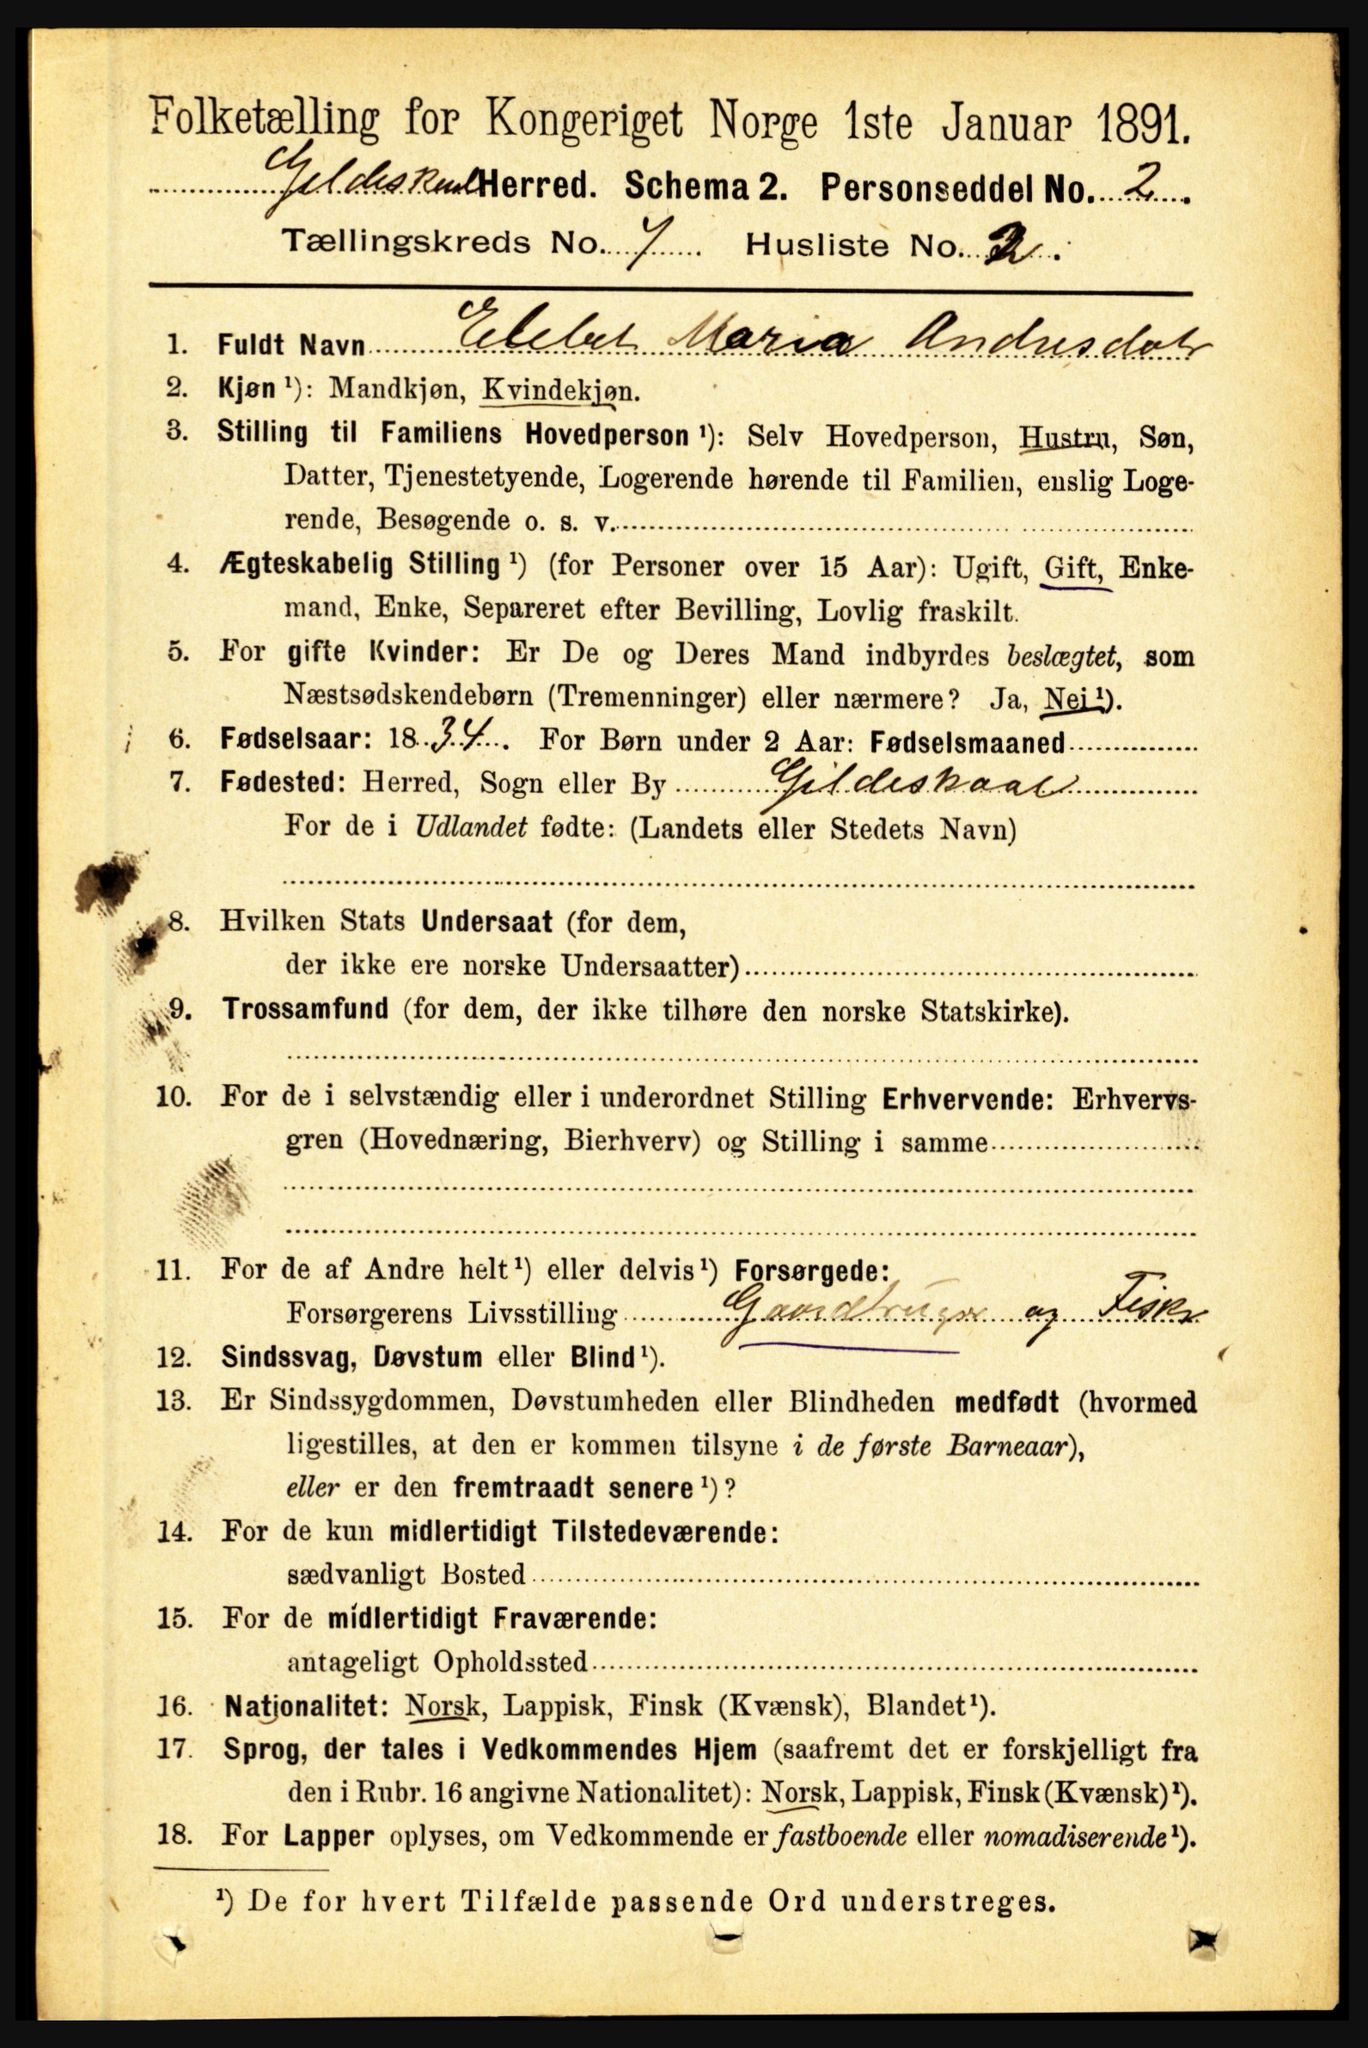 Folketælling for Kongeriget Norge 1ste Januar 1891.
Gildeskaal Herred. Schema 2. Personseddel No. 2.
Tællingskreds No. 7 Husliste No. 2.
1. Fuldt Navn Maria Andresdatr
2. Kjøn ¹): Mandkjøn, Kvindekjøn.
3. Stilling til Familiens Hovedperson ¹): Selv Hovedperson, Hustru, Søn,
Datter, Tjenestetyende, Logerende hørende til Familien, enslig Loge-
rende, Besøgende o. s. v.
4. Ægteskabelig Stilling ¹) (for Personer over 15 Aar): Ugift, Gift, Enke-
mand, Enke, Separeret efter Bevilling, Lovlig fraskilt.
5. For gifte Kvinder: Er De og Deres Mand indbyrdes beslægtet, som
Næstsødskendebørn (Tremenninger) eller nærmere? Ja, Nei ¹).
6. Fødselsaar: 1834. For Børn under 2 Aar: Fødselsmaaned
7. Fødested: Herred, Sogn eller By Gildeskaal
For de i Udlandet fødte: (Landets eller Stedets Navn)
8. Hvilken Stats Undersaat (for dem,
der ikke ere norske Undersaatter)
9. Trossamfund (for dem, der ikke tilhøre den norske Statskirke).
10. For de i selvstændig eller i underordnet Stilling Erhvervende: Erhvervs-
gren (Hovednæring, Bierhverv) og Stilling i samme
11. For de af Andre helt ¹) eller delvis ¹) Forsørgede:
Forsørgerens Livsstilling Gaardbruger og Fisker
12. Sindssvag, Døvstum eller Blind ¹).
13. Er Sindssygdommen, Døvstumheden eller Blindheden medfødt (hvormed
ligestilles, at den er kommen tilsyne i de første Barneaar),
eller er den fremtraadt senere ¹)?
14. For de kun midlertidigt Tilstedeværende:
sædvanligt Bosted
15. For de midlertidigt Fraværende:
antageligt Opholdssted
16. Nationalitet: Norsk, Lappisk, Finsk (Kvænsk), Blandet ¹).
17. Sprog, der tales i Vedkommendes Hjem (saafremt det er forskjelligt fra
den i Rubr. 16 angivne Nationalitet): Norsk, Lappisk, Finsk (Kvænsk) ¹).
18. For Lapper oplyses, om Vedkommende er fastboende eller nomadiserende ¹).
¹) De for hvert Tilfælde passende Ord understreges.